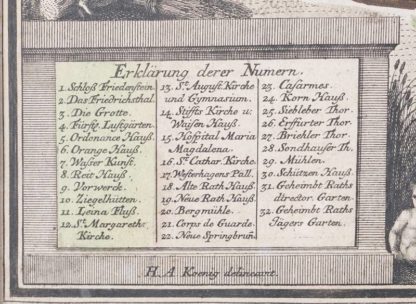 Erklärung derer Numern.
1. Schloß Friedenstein.
2. Das Friedrichsthal.
3. Die Grotte.
4. Fürstl. Lustgärten.
5. Ordonance Hauß.
6. Orange Hauß.
7. Waßer Kunst.
8. Reit Hauß.
9. Vorwerck.
10. Ziegelhütten.
11. Leina Fluß.
12. St. Margarethe
Kirche.
13. St. August. Kirche
und Gymnasium.
14. Stiffts Kirche u.
Waisen Hauß.
15. Hospital Maria
Magdalena.
16. St. Cathar. Kirche.
17. Westerhagens Pall.
18. Alte Rath Hauß.
19. Neue Rath Hauß.
20. Bergmühle.
21. Corps de Guarde.
22. Neue Springbrun.
23. Casarmes.
24. Korn Hauß.
25. Siebleber Thor.
26. Erffurter Thor.
27. Briehler Thor.
28. Sondhauser Th.
29. Mühlen.
30. Schützen Hauß.
31. Geheimbt Raths
director. Garten.
32. Geheimbt Raths
Jägers Garten.
H. A. Koenig delineavit.